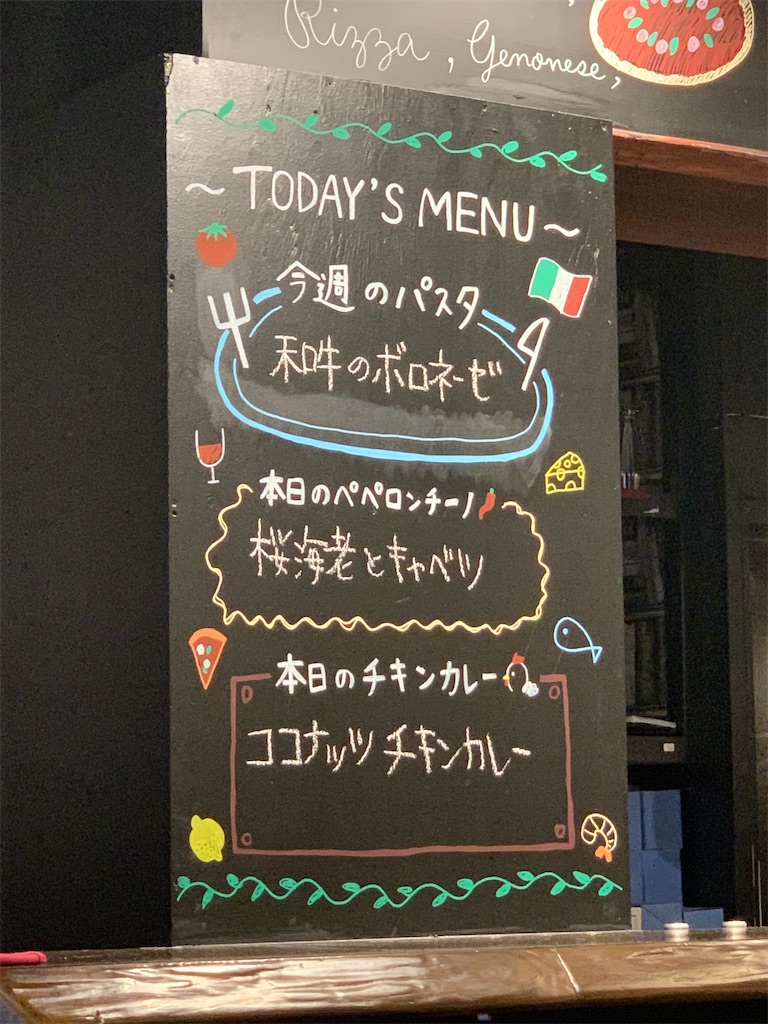 Pizza, Genonese,
~TODAY'S MENU~
今週のパスタ
和牛のボロネーゼ
本日のペペロンチーノ
桜海老とキャベツ
本日のチキンカレー
ココナッツチキンカレー